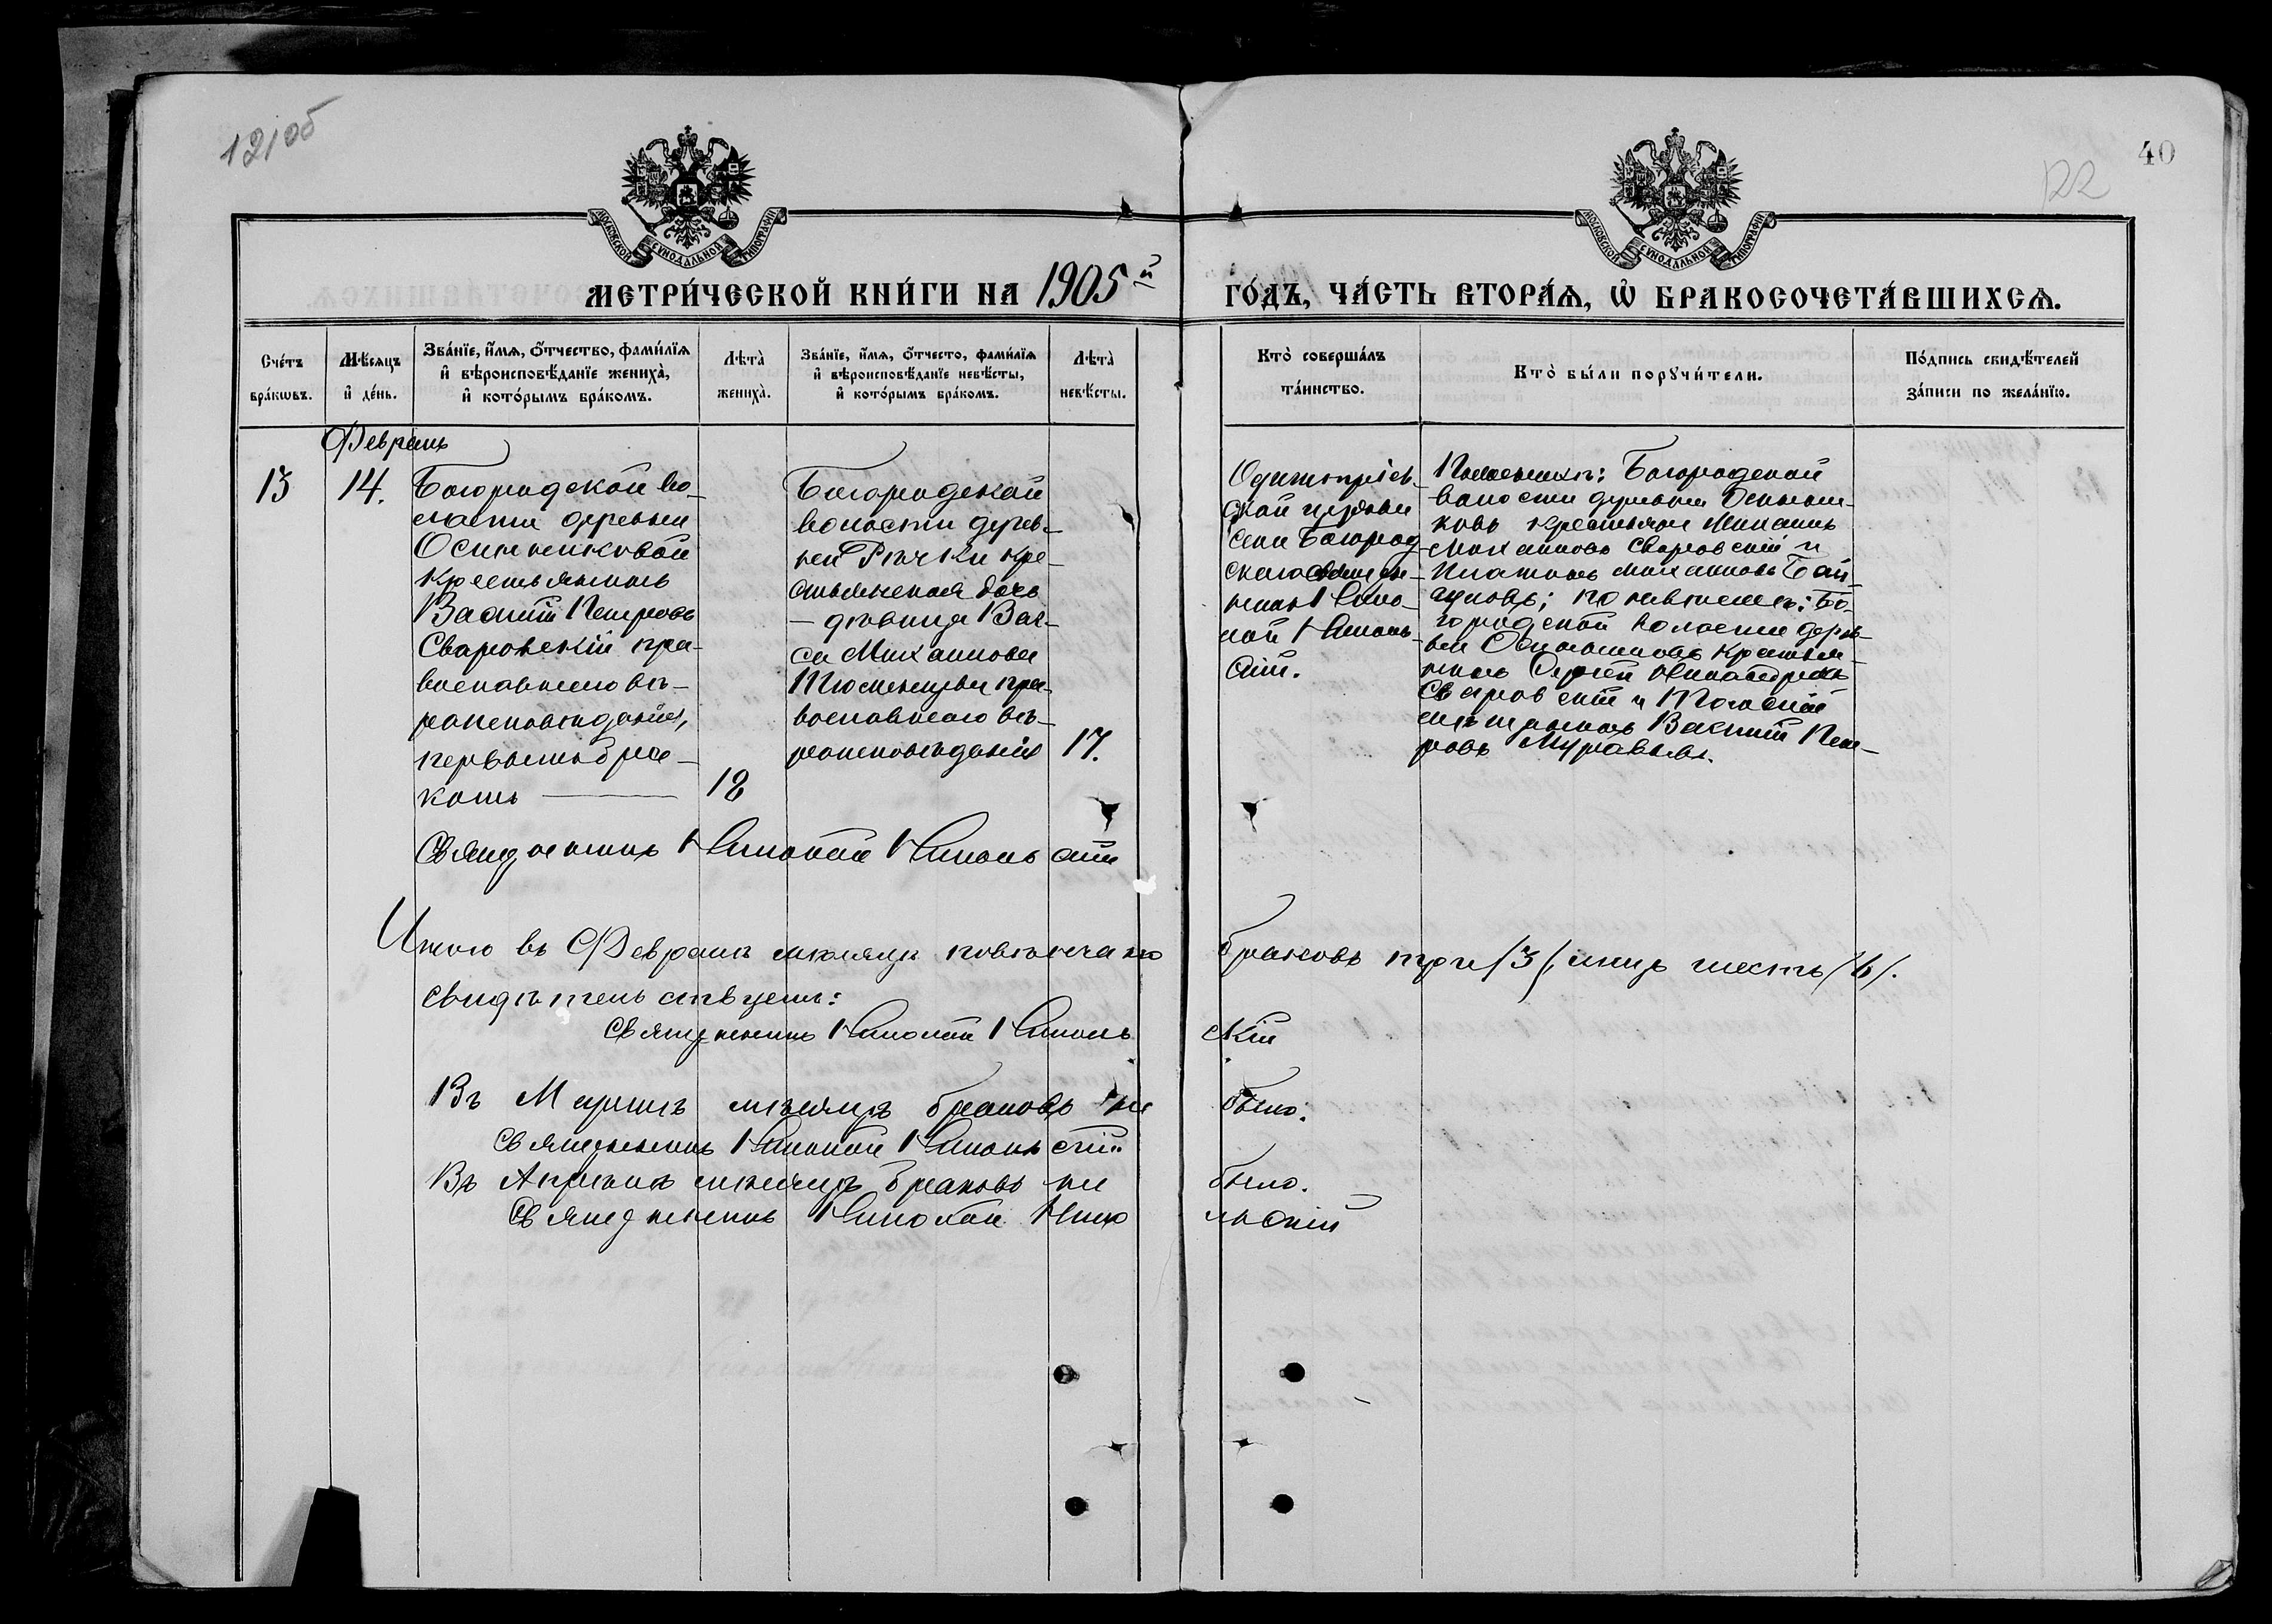 121об
122
40
МОСКОВСКОЙ СУНОДАЛЬНОЙ ТИПОГРАФІИ
МОСКОВСКОЙ СУНОДАЛЬНОЙ ТИПОГРАФІИ
МЕТРИ́ЧЕСКОЙ КНИ́ГИ НА 1905й
ГО́ДЪ, ЧА́СТЬ ВТОРА́Ѧ, Ѡ҆ БРАКОСОЧЕТА́ВШИХСѦ.
Сче́тъ бра́кѡвъ.
Мѣ́сѧцъ и҆ де́нь.
Зва́нїе, и҆́мѧ, ѻ҆́тчество, фами́лїѧ
и҆ вѣроисповѣ́данїе жениха̀,
и҆ кото́рымъ бра́комъ.
Лѣта̀ жениха̀.
Зва́нїе, и҆́мѧ, ѻ҆́тчесто, фами́лїѧ
и҆ вѣроисповѣ́данїе невѣ́сты,
и҆ кото́рымъ бра́комъ.
Лѣта̀ невѣ́сты.
Кто̀ соверша́лъ
та́инство.
Кто̀ бы́ли порꙋчи́тели.
По́дпись свидѣ́телей
за́писи по жела́нїю.
Февраль
13
14.
Богородской во-
лости деревни
Осинниковой
крестьянинъ
Василій Петровъ
Сваровскій пра-
вославнаго вѣ-
роисповѣданія,
первымъ бра-
комъ
18
Богородской
волости дерев-
ни Рѣчки кре-
стьянская дочь
– дѣвица Вас-
са Михаилова
Тюменцева пра-
вославнаго вѣ-
роисповѣданія
17.
Одигитріев-
ской церкви
села Богород-
скаго священ-
никъ Нико-
лай Николь-
скій.
По женихѣ: Богородской
волости деревни Осинни-
ковъ крестьяне Михаилъ
Михаиловъ Сваровскій и
Платонъ Михаиловъ Бай-
гуловъ; по невѣстѣ: Бо-
городской волости дерев-
ни Осинниковъ крестья-
нинъ Сергій Никандровъ
Сваровскій и Томскій
мѣщанинъ Василій Пет-
ровъ Муравьевъ.
Священникъ Николай Никольскій
Итого въ Февралѣ мѣсяцѣ повѣнчано браковъ три /3/, лицъ шесть /6/.
свидѣтельствуетъ:
Священникъ Николай Никольскій
Въ Мартѣ мѣсяцѣ браковъ не было.
Священникъ Николай Никольскій
Въ Апрѣлѣ мѣсяцѣ браковъ не было.
Священникъ Николай Никольскій